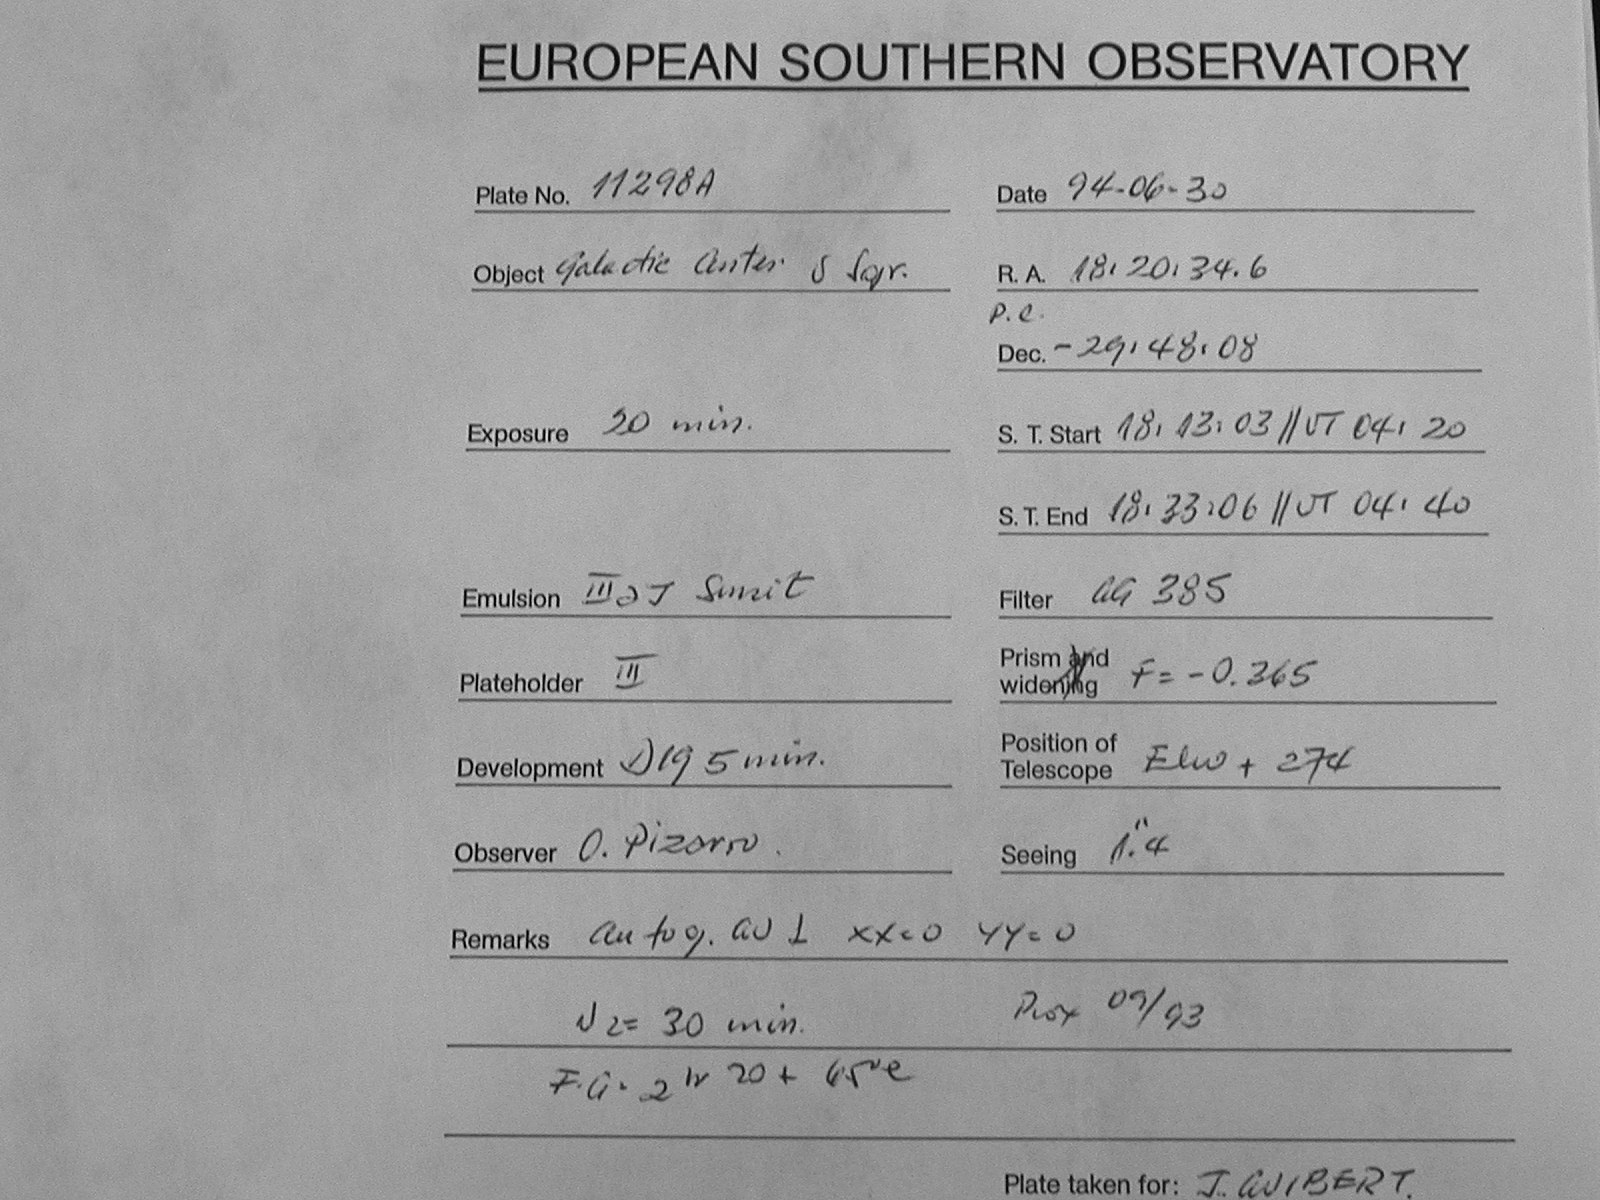 EUROPEAN SOUTHERN OBSERVATORY
Plate No. 11298A
Date 94-06-30
Object Galactic Center δ Sgr.
R. A. 18:20:34.6
P.C.
Dec. -29:48:08
Exposure 20 min.
S. T. Start 18:13:03 // UT 04:20
S. T. End 18:33:06 // UT 04:40
Emulsion IIIaJ
Filter GG 385
Plateholder III
Prism and widening F= -0.365
Development D19 5 min.
Position of Telescope + 274
Observer O. Pizarro.
Seeing 1".4
Remarks Autog. XX=0 YY=0
N2= 30 min.
09/93
F.G. 2 hr 20 +
Plate taken for: J. GUIBERT.